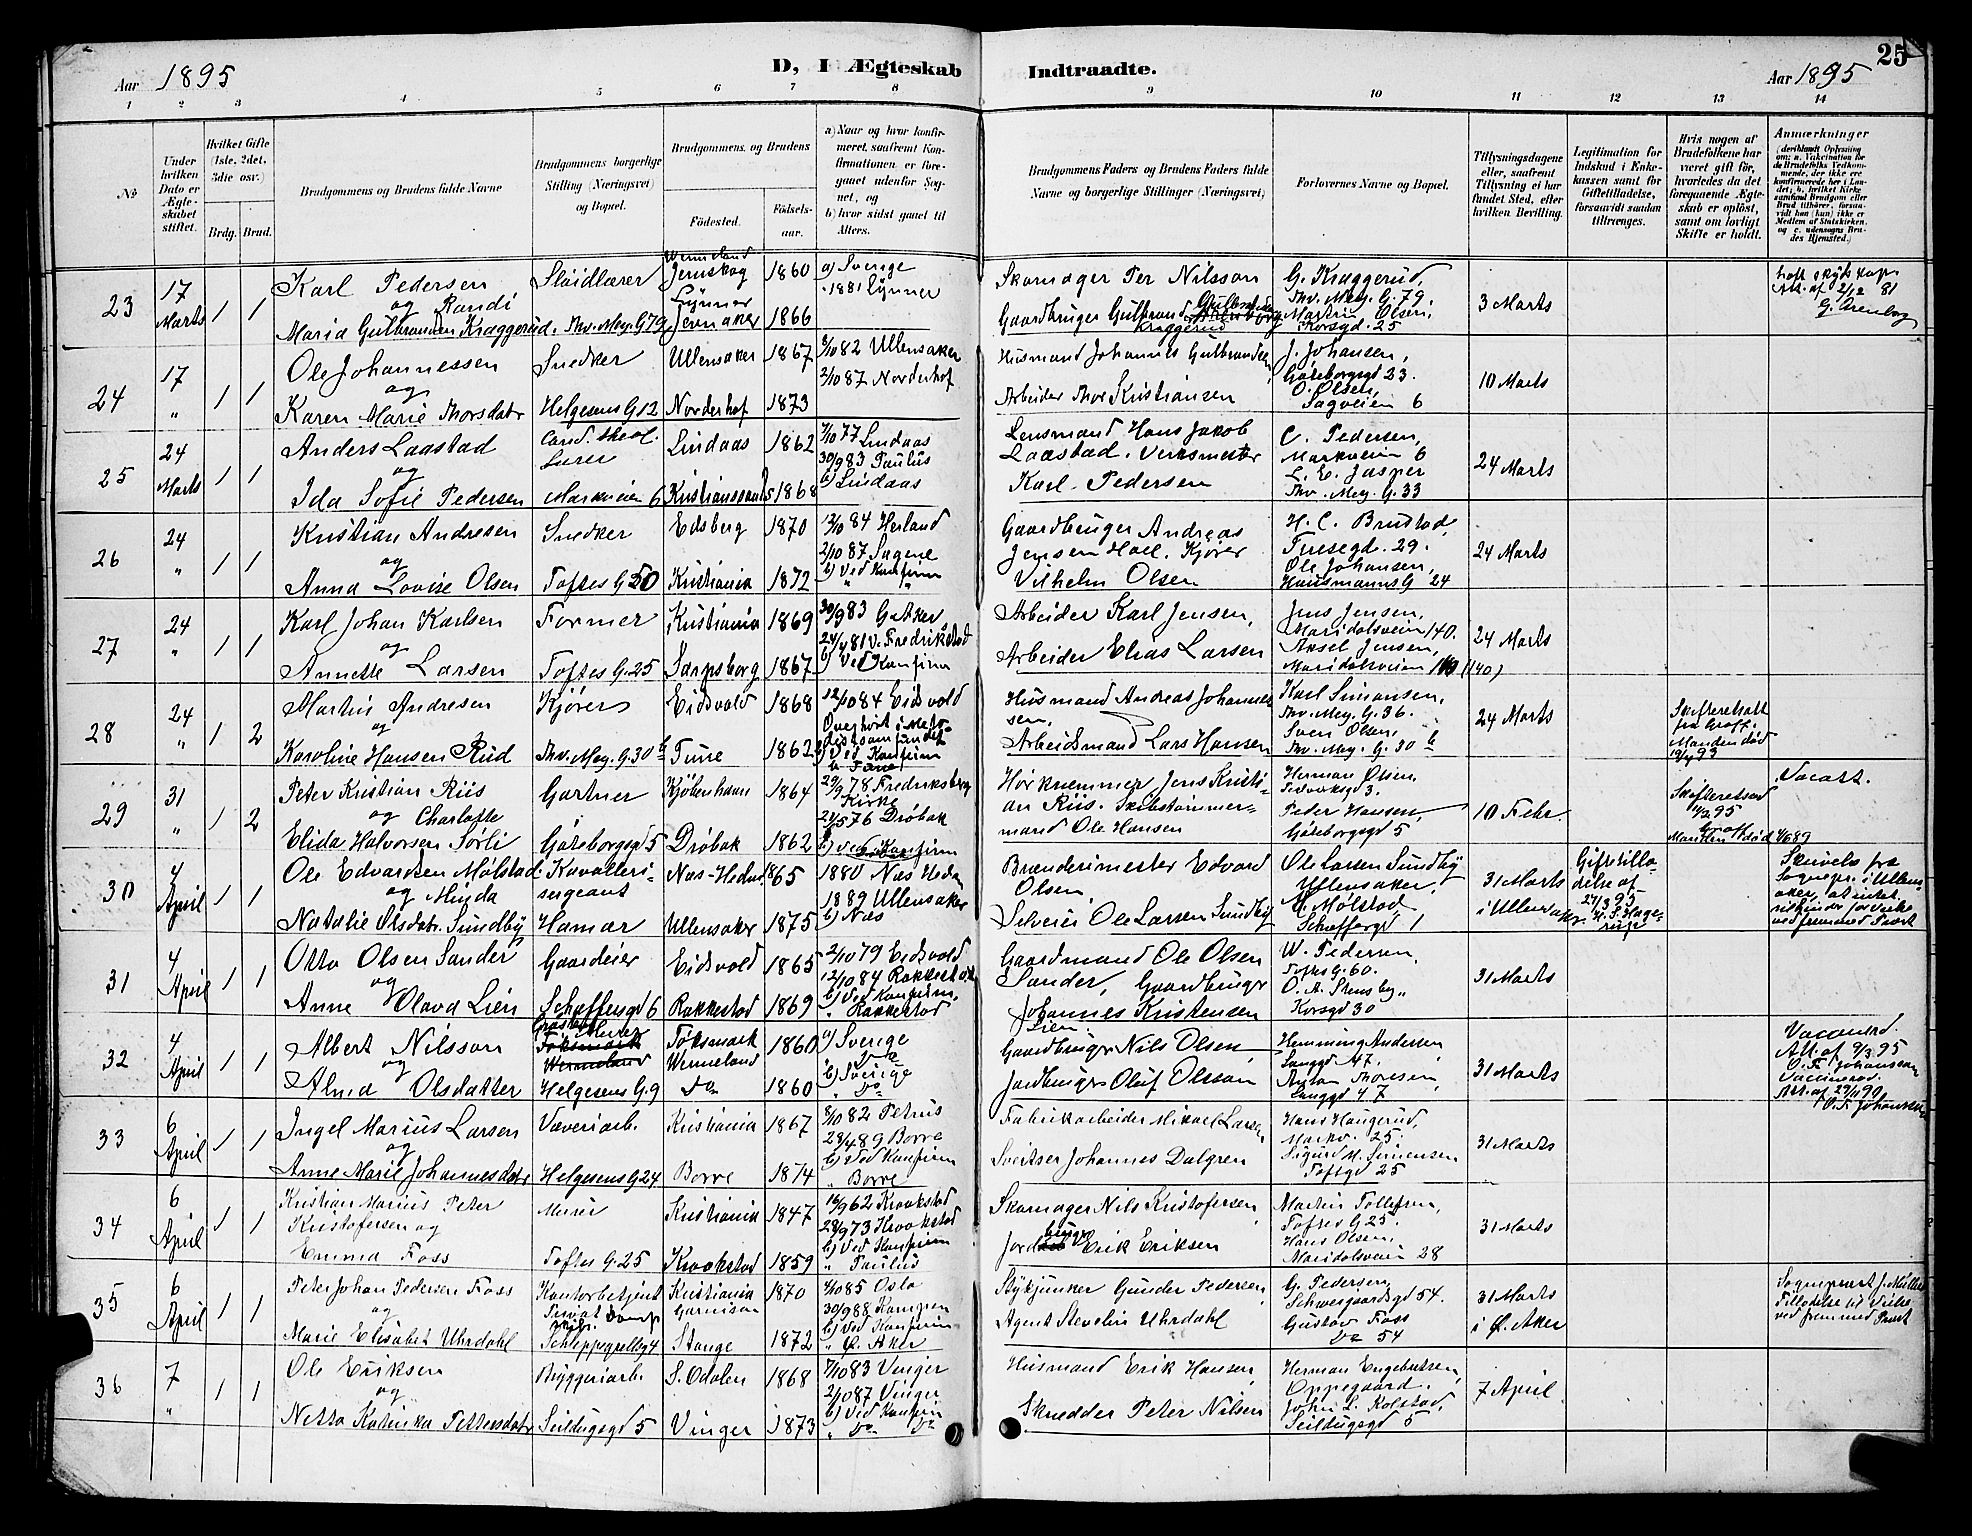 25
Aar 1895 D, I Ægteskab Indtraadte. Aar 1895
1 2 3 4 5 6 7 8 9 10 11 12 13 14
No
Under hvilken Dato er Ægteskabet stiftet.
Hvilket Gifte (1ste, 2det, 3die osv.)
Brdg. Brud.
Brudgommens og Brudens fulde Navne
Brudgommens borgerlige Stilling (Næringsvei) og Bopæl.
Brudgommens og Brudens
Fødested. Fødselsaar.
a) Naar og hvor konfirmeret, saafremt Konfirmationen er foregaaet udenfor Sognet, og
b) hvor sidst gaaet til Alters.
Brudgommens Faders og Brudens Faders fulde Navne og borgerlige Stillinger (Næringsvei)
Forlovernes Navne og Bopæl.
Tillysningsdagene eller, saafremt Tillysning ei har fundet Sted, efter hvilken Bevilling.
Legitimation for Indskud i Enkekassen samt for Giftetilladelse, forsaavidt saadan tiltrænges.
Hvis nogen af Brudefolkene har været gift før, hvorledes da det foregaaende Ægteskab er opløst, samt om lovligt Skifte er holdt.
Anmærkninger (deriblandt Oplysning om: a. Vakcination for de Brudefolks Vedkommende, der ikke ere konfirmerede her i Landet; b. hvilket Kirkesamfund Brudgom eller Brud tilhører, forsaavidt han (hun) ikke er Medlem af Statskirken, og c. udensogns Brudes Hjemsted.)
23 17 Marts 1 1
Karl Pedersen
og Randi
Maria Gulbrandsen Kraggerud. Thv. Mey. G. 79
Sløidlærer
Wermeland
Jernskog 1860
Lynner
Jevnaker 1866
a) Sverige
1881 Lynner
Skomager Per Nilsson
Gaardbruger Gulbrand
Kraggerud
G. Kraggerud,
Thv. Mey. G. 79.
Martin Olsen,
Korsgd. 25
3 Marts
Att. af 2/12 81
24 17 " 1 1
Ole Johannessen
og
Karen Marie Thorsdatr
Snedker
Helgesens G 12
Ullensaker 1867
Norderhof 1873
8/10 82 Ullensaker
2/10 87 Norderhof
Husmand Johannes Gulbrandsen
Arbeider Thor Kristiansen
J. Johansen,
Gøteborgsgd 23.
O. Olsen,
Sagveien 6
10 Marts
25 24 Marts 1 1
Anders Laastad
og
Ida Sofie Pedersen
Cand. theol.
Lærer
Markveien 6
Lindaas 1862
Kristianssund S 1868
7/10 77 Lindaas
30/9 83 Paulus
b) Lindaas
Lensmand Hans Jakob
Laastad. Verksmester
Karl Pedersen
C. Pedersen,
Markveien 6
L. E. Jasper
Thv. Mey. G. 33
24 Marts
26 24 " 1 1
Kristian Andresen
og
Anna Lovise Olsen
Snedker
Toftes G. 50
Edsberg 1870
Kristiania 1872
12/10 84 Herland
2/10 87 Sagene
b) Ved Konfirm
Gaardbruger Andreas
Jensen Hoel. Kjører
Vilhelm Olsen
H. C. Brustad,
Turesegd. 29.
Ole Johansen,
Hausmanns G 24
24 Marts
27 24 " 1 1
Karl Johan Karlsen
og
Annette Larsen
Former
Toftes G. 25
Kristiania 1869
Sarpsborg 1867
30/9 83 G. Aker
24/4 81 V. Fredrikstad
b) Ved Konfirm
Arbeider Karl Jensen,
Arbeider Elias Larsen
Jens Jensen,
Maridalsveien 140.
Aksel Jensen,
Maridalsveien (140)
24 Marts
28 24 " 1 2
Martin Andresen
og
Karoline Hansen Rud
Kjører
Thv. Mey. G. 30 b
Eidsvold 1868
Tune 1862
12/10 84 Eidsvold
Overhørt i Metodistsamfundet
b) Ved Konfirm
" Tune
Husmand Andreas Johannessen.
Arbeidsmand Lars Hansen
Karl Simonsen,
Thv. Mey. G. 36.
Sven Olsen,
Thv. Mey. G. 30 b
24 Marts
Skifteretsatt
fra Graff.
Manden død
19/4 93
29 31 " 1 2
Peter Kristian Riis
og Charlotte
Elida Halvorsen Sørli
Gartner
Gøteborgsgd 5
Kjøbenhavn 1864
Drøbak 1862
29/9 78 Fredriksberg
Kirke
24/5 76 Drøbak
b) Ved Konfirm
Hørkræmmer Jens Kristian Riis. Skibstømmermand Ole Hansen
Herman Olsen,
Peter Hansen,
Gøteborgsgd 5
10 Febr.
Skifteretsatt
Manden død 4/6 89
Vacatt.
30 4 April 1 1
Ole Edvardsen Mølstad
og Minda
Natalie Olsdatr. Sundby
Kavallerisergeant
Hamar
Næs-Hedm. 1865
Ullensaker 1875
1880 Næs Hedm
1889 Ullensaker
b) Næs
Brænderimester Edvard
Olsen
Selveier Ole Larsen Sundby
Ole Larsen Sundby
Ullensaker,
M. Mølstad
Scheffersgd 1
31 Marts
i Ullensaker
Giftetilladelse af
27/3 95
H. S. Hagerup
Skrivelse fra
Sognepr. i Ullensaker, at intet
er til hinder for Vielse
ved fremmed Præst
31 4 April 1 1
Otto Olsen Sander
og
Anne Olava Lien
Gaardeier
Scheffersgd 6
Eidsvold 1865
Rakkestad 1869
2/10 79 Eidsvold
12/10 84 Rakkestad
b) Ved Konfirm.
" Rakkestad
Gaardmand Ole Olsen
Sander, Gaardbruger
Johannes Kristensen
Lien
W. Pedersen,
Toftes G. 60.
O. A. Stensby,
Korsgd 30
31 Marts
32 4 April 1 1
Albert Nilsson
og
Alma Olsdatter
Helgesens G. 9
Foksmark
Wermeland 1860
Do 1860
a) Sverige
" Do
b) Sverige
" Do
Gaardbruger Nils Olsen
Jordbruger Oluf Olsson
Hemming Andersen
Langgd 47.
Anton Thoresen,
Langgd 47
31 Marts
Vaccinerd.
Att. af 9/3 95
O. F. Johanssen
Vaccinerad.
Att. af 29/11 90
O. F. Johanssen
33 6 April 1 1
Ingel Marius Larsen
og
Anne Marie Johannesdatr
Væveriarb.
Helgesens G 24
Kristiania 1867
Borre 1874
8/10 82 Petrus
28/4 89 Borre
b) Ved Konfirm
" Borre
Fabrikarbeider Mikael Larsen
Sveitser Johannes Dalgren
Hans Haugerud,
Markv. 25.
Sigurd M. Sørensen
Toftgd 25
31 Marts
34 6 April 1 1
Kristian Marius Peter
Kristofersen og
Emma Foss
Murer
Toftes G. 25
Kristiania 1847
Kraakstad 1859
16/9 62 Kraakstad
28/9 73 Kraakstad
b) Ved Konfirm
" Paulus
Skomager Nils Kristofersen
Jordbruger Erik Eriksen
Martin Tollefsen,
Toftes G 25.
Hans Olsen,
Maridalsveien 28
31 Marts
35 6 April 1 1
Peter Johan Pedersen Foss
og
Marie Elisabet Uhrdahl
Kontorbetjent
Privat
Schleppegrellsg 4
Kristiania
Garnison 1870
Stange 1872
4/10 85 Oslo
30/9 88 Kampen
b) Ved Konfirm
" Ø. Aker
Stykjunker Gunder Pedersen
Agent Severin Uhrdahl
G. Pedersen,
Schweigaardsgd 54.
Gustav Foss
Do 54
31 Marts
i Ø. Aker
Sognepræst J. Müllers
Tilladelse til Vielse
ved fremmed Præst
36 7 " 1 1
Ole Eriksen
og
Netta Katinka Pettersdatr
Bryggeriarb.
Seildugsgd 5
S. Odalen 1868
Vinger 1873
7/10 83 Vinger
2/10 87 Vinger
b) Ved Konfirm
" Do Do
Husmand Erik Hansen,
Skrædder Peter Nilsen
Herman Engebretsen,
Oppegaard.
John L. Kolstad,
Seildugsgd 5
7 April